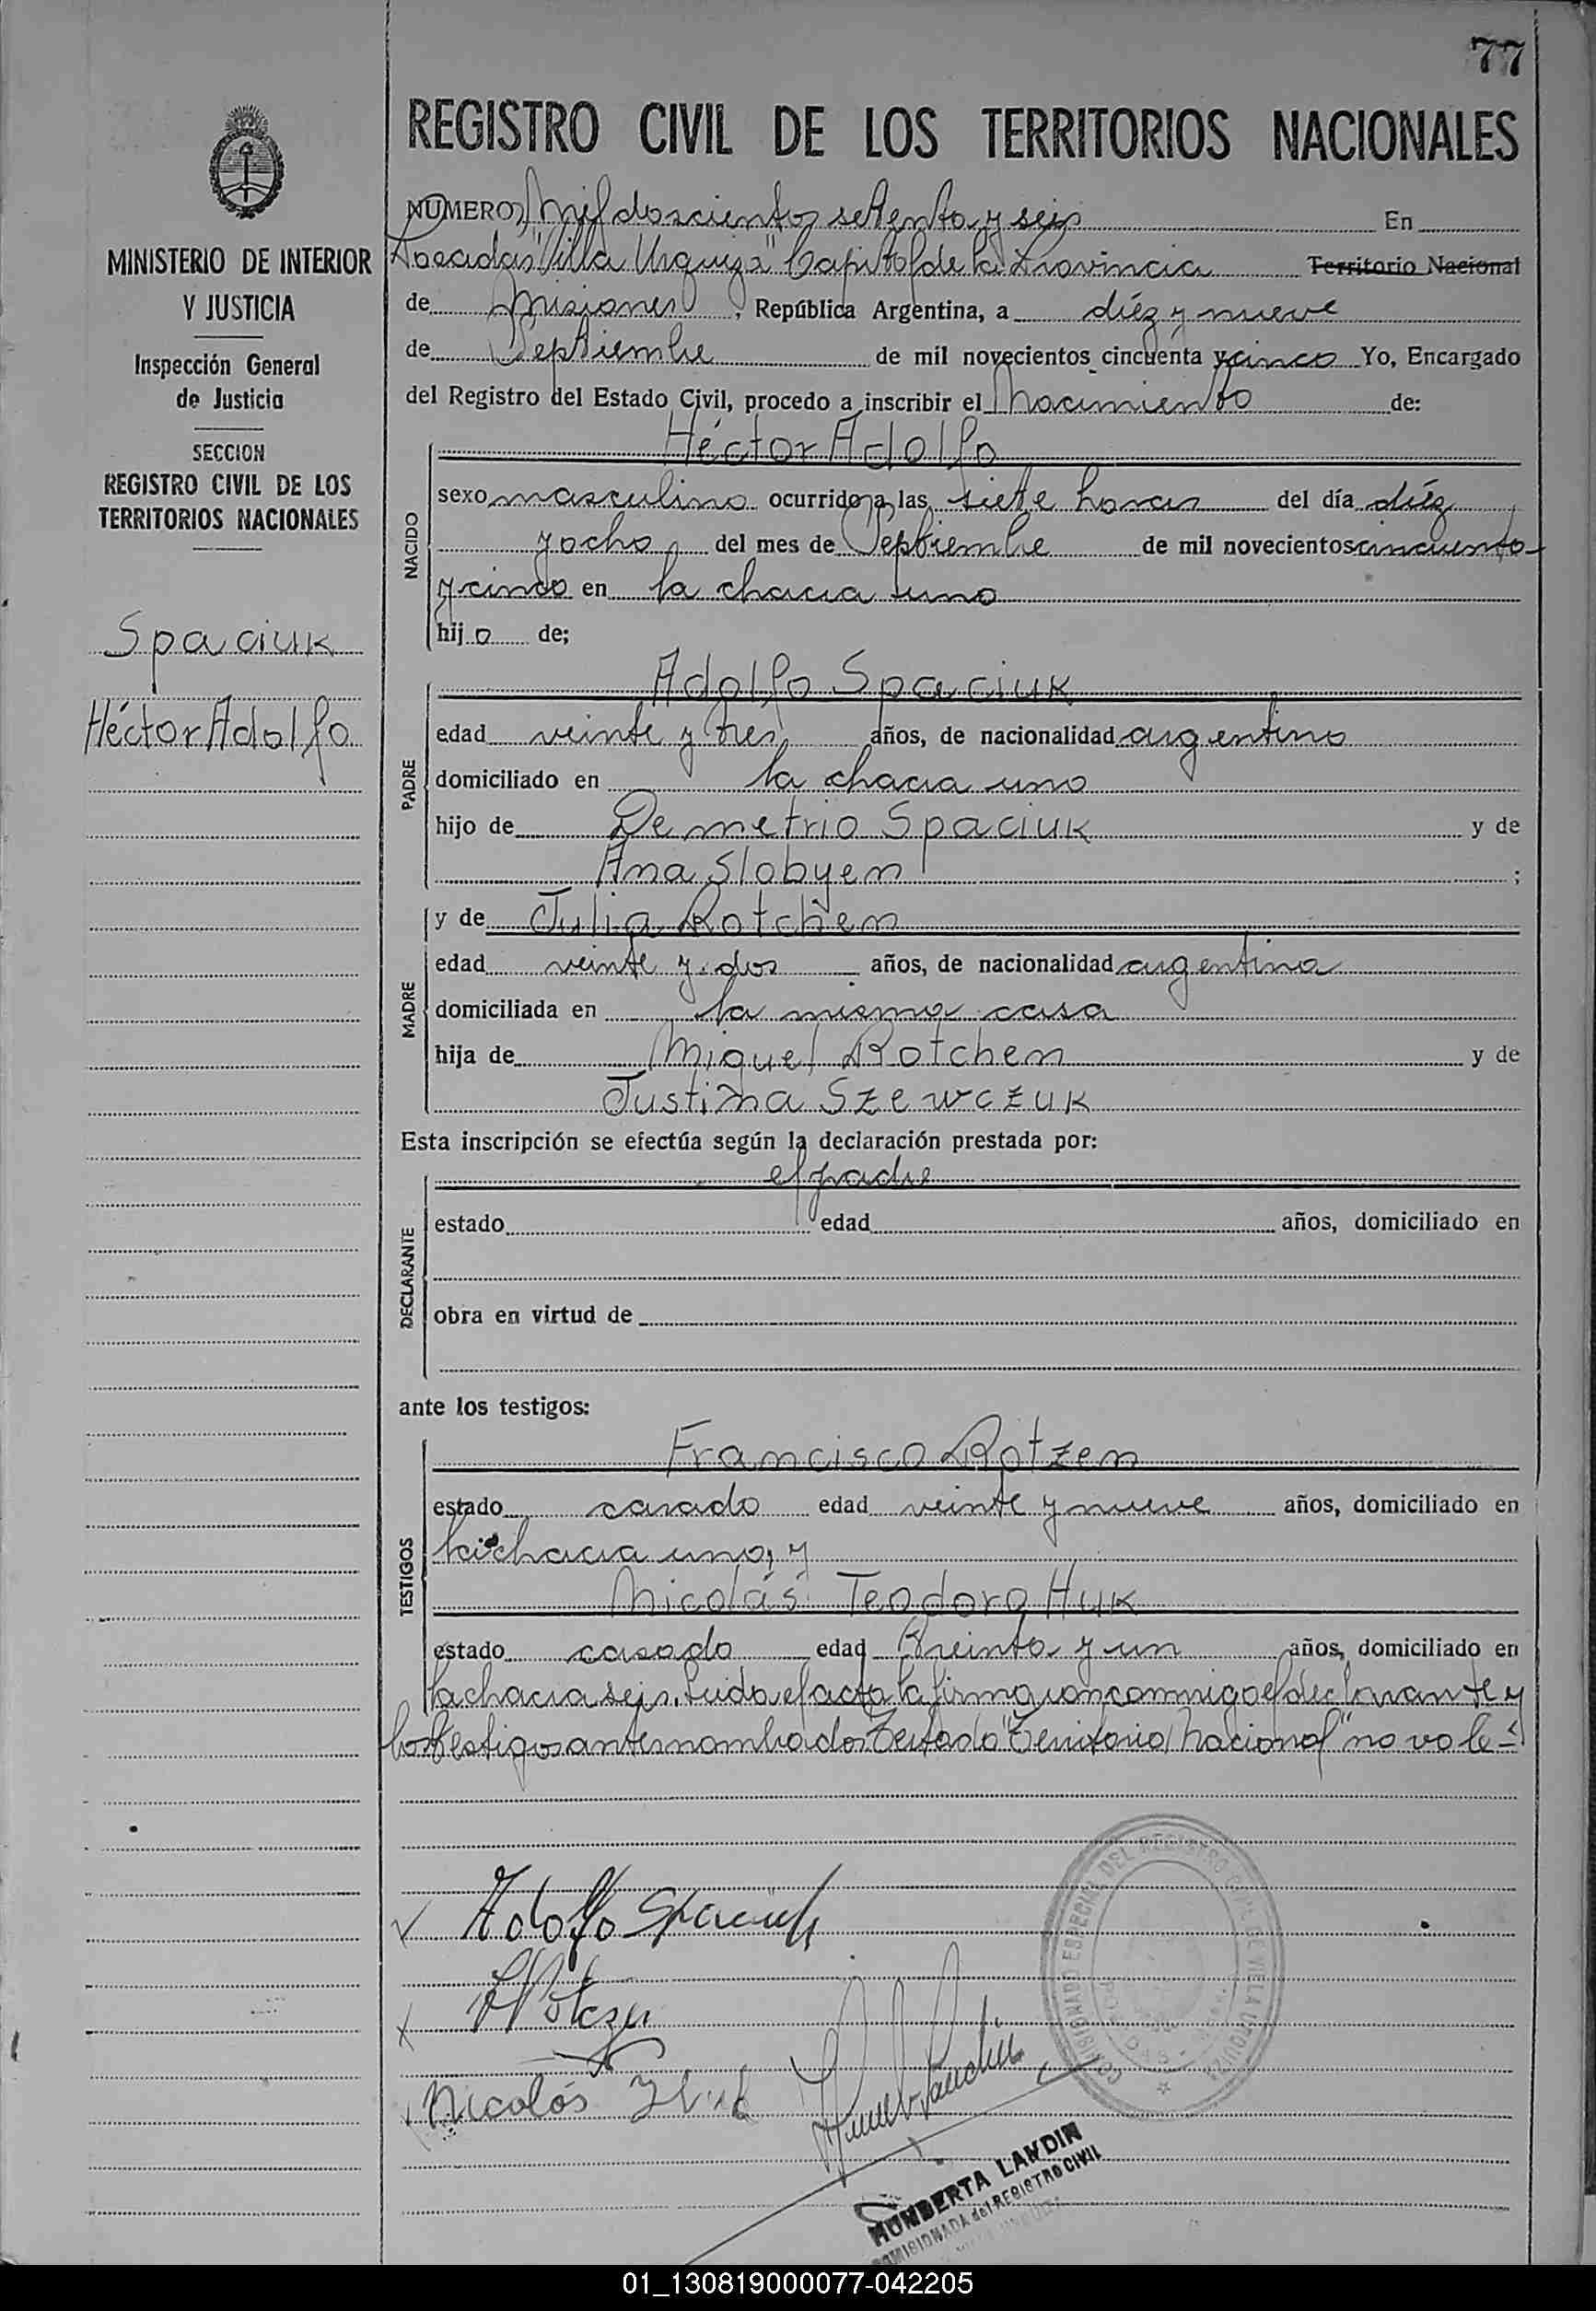 77
REGISTRO CIVIL DE LOS TERRITORIOS NACIONALES
MINISTERIO DE INTERIOR
Y JUSTICIA
Inspección General
de Justicia
SECCION
REGISTRO CIVIL DE LOS
TERRITORIOS NACIONALES
Spaciuk
Héctor Adolfo
NUMERO Mil doscientos setenta y seis En
Posadas "Villa Urquiza" Capital de la Provincia Territorio Nacional
de Misiones, República Argentina, a diéz y nueve
de Septiembre de mil novecientos cincuenta y cinco Yo, Encargado
del Registro del Estado Civil, procedo a inscribir el Nacimiento de:
NACIDO
Héctor Adolfo
sexo masculino ocurrido a las siete horas del día diéz
y ocho del mes de Septiembre de mil novecientos cincuenta
y cinco en la chacra uno
hijo de;
PADRE
Adolfo Spaciuk
edad veinte y tres años, de nacionalidad argentino
domiciliado en la chacra uno
hijo de Demetrio Spaciuk y de
Ana Slobyen ;
MADRE
y de Julia Rotchen
edad veinte y dos años, de nacionalidad argentina
domiciliada en la misma casa
hija de Miguel Rotchen y de
Justina Szewczuk
Esta inscripción se efectúa según la declaración prestada por:
DECLARANTE
el padre
estado edad años, domiciliado en
obra en virtud de
ante los testigos:
TESTIGOS
Francisco Rotzen
estado casado edad veinte y nueve años, domiciliado en
la chacra uno, y
Nicolás Teodoro Huk
estado casado edad treinta y un años, domiciliado en
la chacra seis. Leida el acta la firman conmigo el declarante y
los testigos antes nombrados. Testado "Territorio Nacional" no vale.
Adolfo Spaciuk
Nicolás Huk
COMISIONADO ESPECIAL DEL REGISTRO CIVIL DE VILLA URQUIZA
HUMBERTA LANDIN
COMISIONADA del REGISTRO CIVIL
01_130819000077-042205